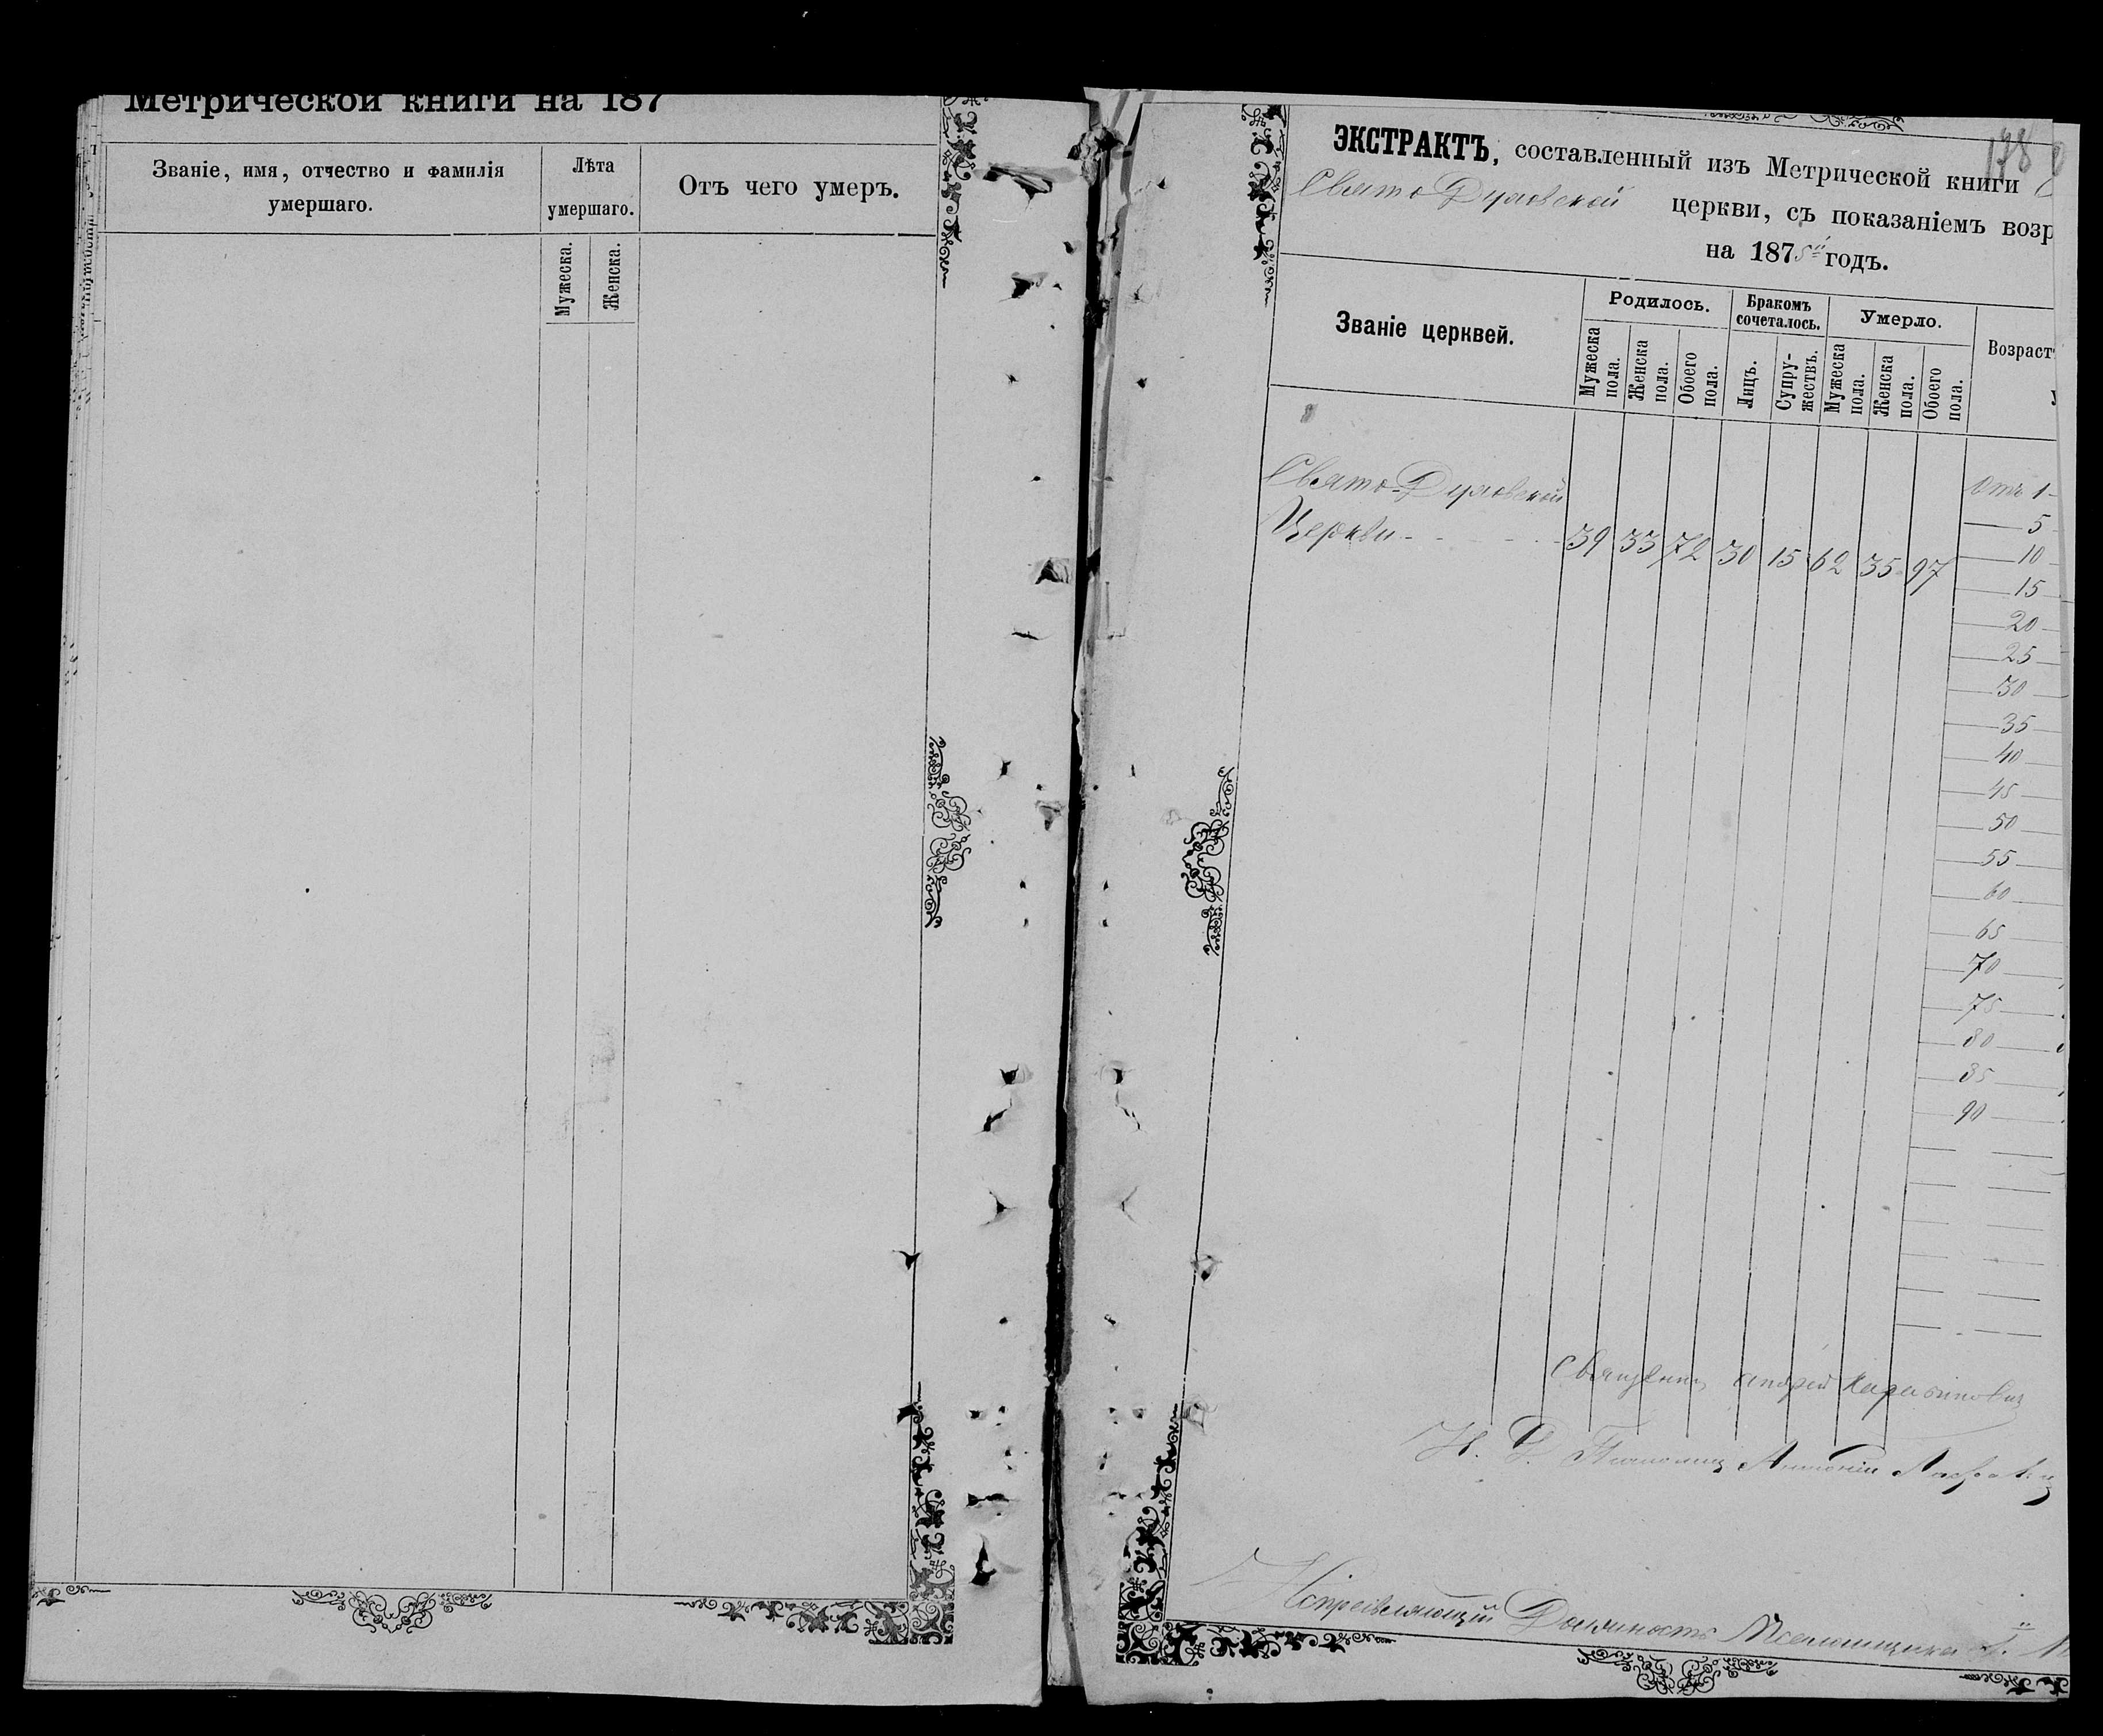 Метрической книги на 187
Званіе, имя, отчество и фамилія
умершаго.
Лѣта
умершаго.
Отъ чего умеръ.
Мужеска.
Женска.
178
ЭКСТРАКТЪ, составленный изъ Метрической книги
Свято Духовской церкви, съ показаніемъ возр
на 1875й годъ.
Званіе церквей.
Родилось.
Бракомъ
сочеталось.
Умерло.
Возраст
Мужеска
пола.
Женска
пола.
Обоего
пола.
Лицъ.
Супру-
жествъ.
Мужеска
пола.
Женска
пола.
Обоего
пола.
Свято-Духовской
Церкви - - - - - 39 33 72 30 15 62 35 97
Отъ 1-
5
10
15
20
25
30
35
40
45
50
55
60
65
70
75
80
85
90
Священникъ Андрей
И. Д. Псаломщ Антоній
Исправляющій Должность Псаломщика